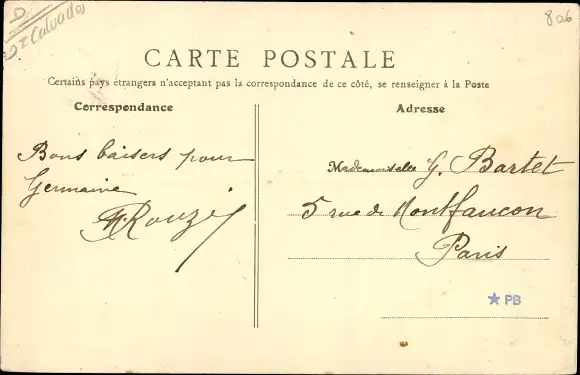 D
Dt Calvados
806
CARTE POSTALE
Certains pays étrangers n'acceptant pas la correspondance de ce côté, se renseigner à la Poste
Correspondance
Adresse
Bons baisers pour
Germaine
Rouzé
Mademoiselle G. Bartet
5 rue de Montfaucon
Paris
★ PB